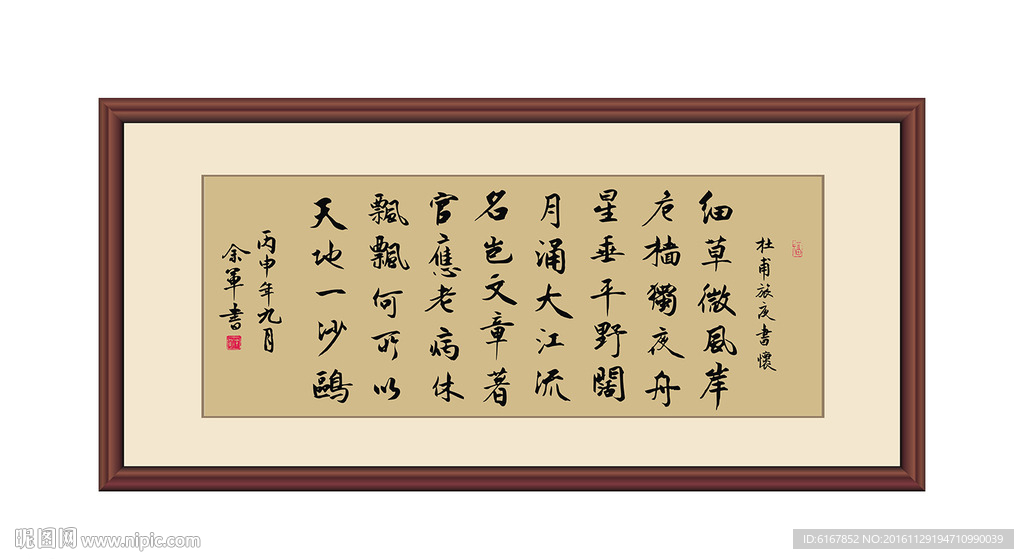 杜甫旅夜書懷
細草微風岸
危檣獨夜舟
星垂平野闊
月涌大江流
名豈文章著
官應老病休
飄飄何所以
天地一沙鷗
丙申年九月
余軍書
昵图网 www.nipic.com
ID:6167852 NO:20161129194710990039